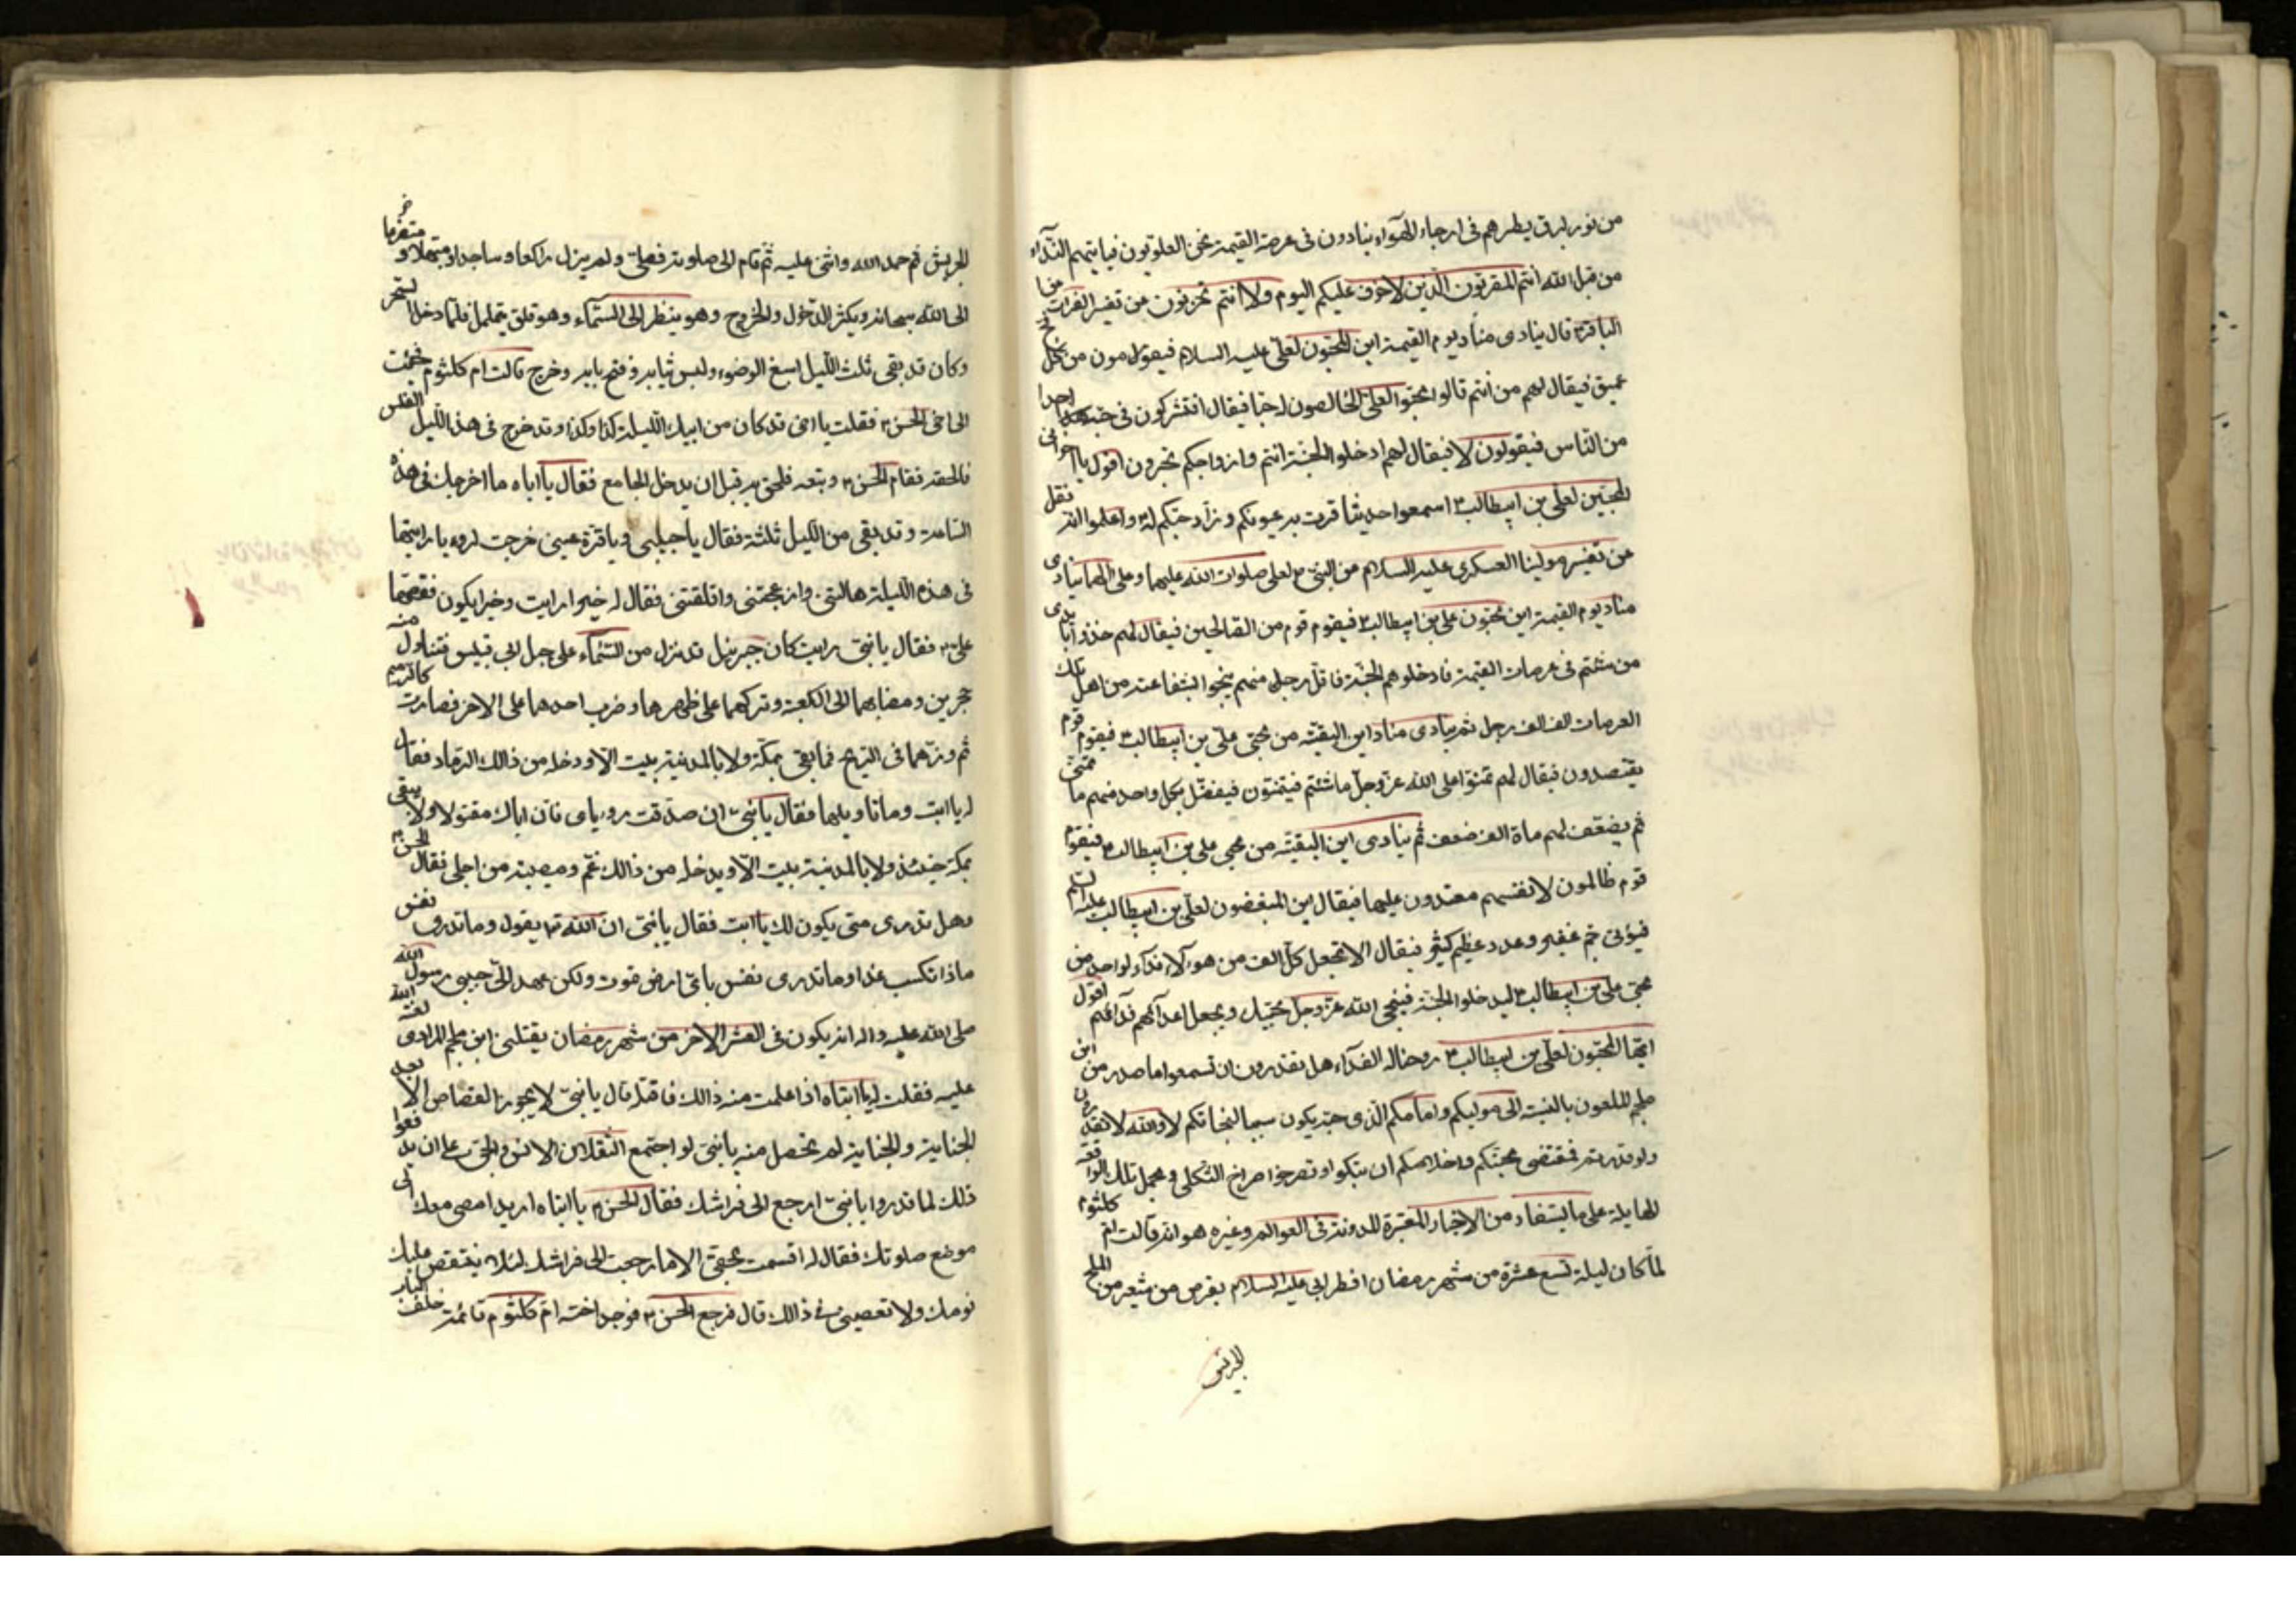 من نور لبرق يطرهم فى ارجاء الهوآء ينادون فى عرصة القيمة نحن العلويون فيأتيهم الندآء
من قبل الله انتم المقربون الذين لاخوف عليكم اليوم ولا انتم تحزنون من تفسير الفرات عن
الباقر؏ قال ينادى مناد يوم القيمة اين المحبون لعلى عليه السلام فيقومون من كل فج
عميق فيقال لهم من انتم قالوا محبوا العلى الخالصون له حبا فيقال افتشركون فى حبه احدا
من الناس فيقولون لا فيقال لهم ادخلوا الجنة انتم وازواجكم تحبرون اقول يا اخوانى
المحبين لعلى بن ابيطالب؏ اسمعوا حديثا قرت به عيونكم وزاد حبكم له؏ واعلموا انه نقل
من تفسير مولينا العسكرى عليه السلام عن النبى ص لعلى صلوات الله عليهما وعلى الهما ينادى
مناد يوم القيمة اين محبون على بن ابيطالب؏ فيقوم قوم من الصالحين فيقال لهم خذوا بايدى
من شئتم فى عرصات القيمة فادخلوهم الجنة فاقل رجل منهم ينجوا بشفاعته من اهل تلك
العرصات الف الف رجل ثم ينادى مناد اين البقية من محبى على بن ابيطالب؏ فيقوم قوم
يقتصدون فيقال لهم تمنوا على الله عز وجل ما شئتم فيتمنون فيفعل بكل واحد منهم ما تمنى
ثم يضعف لهم ماة الف ضعف ثم ينادى اين البقية من محبى على بن ابيطالب؏ فيقوم
قوم ظالمون لانفسهم معتدون عليها فيقال اين المبغضون لعلى بن ابيطالب عليه السلام
فيؤتى جم غفير وعدد عظيم كثير فيقال الا نجعل كل الف من هؤلآء فدآء لواحد من
محبى على بن ابيطالب؏ ليدخلوا الجنة فينجى الله عز وجل محبيك ويجعل اعدآئهم فدآئهم اقول
ايها المحبون لعلى بن ابيطالب؏ روحنا له الفدآء هل تقدرون ان تسمعوا ما صدر من ابن
ملجم الملعون بالنسبة الى موليكم وامامكم الذى حبه يكون سببا لنجاتكم لا والله لا تقدرون
ولو قدرتم فمقتضى محبتكم واخلاصكم ان تبكوا او تصرخوا صراخ الثكلى ومجمل تلك الواقعة
الهايلة على ما يستفاد من الاخبار المعتبرة المدونة فى العوالم وغيره هو انه قالت ام كلثوم
لما كان ليلة تسع عشرة من شهر رمضان افطر ابى عليه السلام بقرص من شعير من الملح
الجريش
الجريش ثم حمد الله واثنى عليه ثم قام الى صلوته فصلى ولم يزل راكعا وساجدا ومبتهلا ومتضرعا
الى الله سبحانه ويكثر الدخول والخروج وهو ينظر الى السمآء وهو قلق يتململ فلما دخل السحر
وكان قد بقى ثلث الليل اسبغ الوضوء ولبس ثيابه وفتح بابه وخرج قالت ام كلثوم فجئت
الى اخى الحسن؏ فقلت يا اخى قد كان من ابيك الليلة كذا وكذا وقد خرج فى هذا الليل الغلس
فالحقه فقام الحسن؏ وتبعه فلحق به قبل ان يدخل الجامع فقال يا اباه ما اخرجك فى هذه
الساعة وقد بقى من الليل ثلثه فقال يا حبيبى ويا قرة عينى خرجت لرويا رايتها
فى هذه الليلة هالتنى وازعجتنى واقلقتنى فقال له خيرا رايت وخيرا يكون فقصها
على؏ فقال يا بنى رايت كان جبرئيل قد نزل من السمآء على جبل ابى قبيس فتناول منه
حجرين ومضا بهما الى الكعبة وتركهما على ظهرها وضرب احدهما على الاخر فصارت كالرميم
ثم ذرهما فى الريح فما بقى بمكة ولا بالمدينة بيت الا ودخله من ذالك الرماد فقال
له يا ابت وما تاويلها فقال يا بنى ان صدقت روياى فان اباك مقتولا ولا يبقى
بمكة حينئذ ولا بالمدينة بيت الا ويدخله من ذالك غم ومصيبة من اجلى فقال الحسن؏
وهل تدرى متى يكون ذلك يا ابت فقال يا بنى ان الله تع يقول وما تدرى نفس
ماذا تكسب غدا وما تدرى نفس باى ارض تموت ولكن عهد الى حبيبى رسول الله
صلى الله عليه واله انه يكون فى العشر الاخر من شهر رمضان يقتلنى ابن ملجم المرادى لعنة الله
عليه فقلت له يا ابتاه اذا علمت منه ذالك فاقتله قال يا بنى لا يجوز القصاص الا بعد
الجناية والجناية لم تحصل منه يا بنى لو اجتمع الثقلان الانس والجن على ان يدفعوا
ذلك لما قدروا يا بنى ارجع الى فراشك فقال الحسن؏ يا ابتاه اريد امضى معك الى
موضع صلوتك فقال له اقسمت بحقى الا ما رجعت الى فراشك لئلا يتنغص عليك
نومك ولا تعصينى فى ذالك قال فرجع الحسن؏ فوجد اخته ام كلثوم قائمة خلف الباب